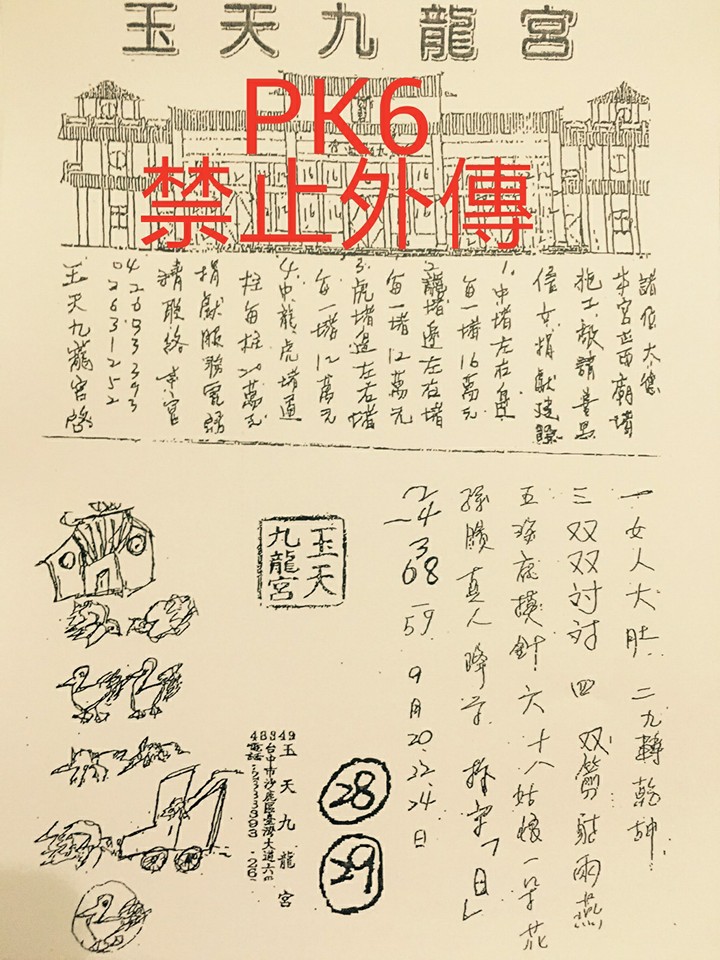 玉天九龍宮
PK6
禁止外傳
諸位大德
本宮正面廟堵
施工敬請善男
信女捐獻
1.中堵左右邊
每一堵16萬元
2.龍堵邊左右堵
每一堵12萬元
3.虎堵邊左右堵
每一堵12萬元
4.中龍虎堵通
柱每柱20萬元
捐獻服務電話
請聯絡本宮
04 26933393
0263 1252
玉天九龍宮啓
一女人大肚 二九轉乾坤
三双双对对 四 双箭射雨燕
五 海底摸針 六 十八姑娘一朵花
孫臏真人降 「日」
24
3
68
59
9月20.22.24日
玉天
九龍宮
玉天九龍宮
台中市沙鹿區臺灣大道六
28
29